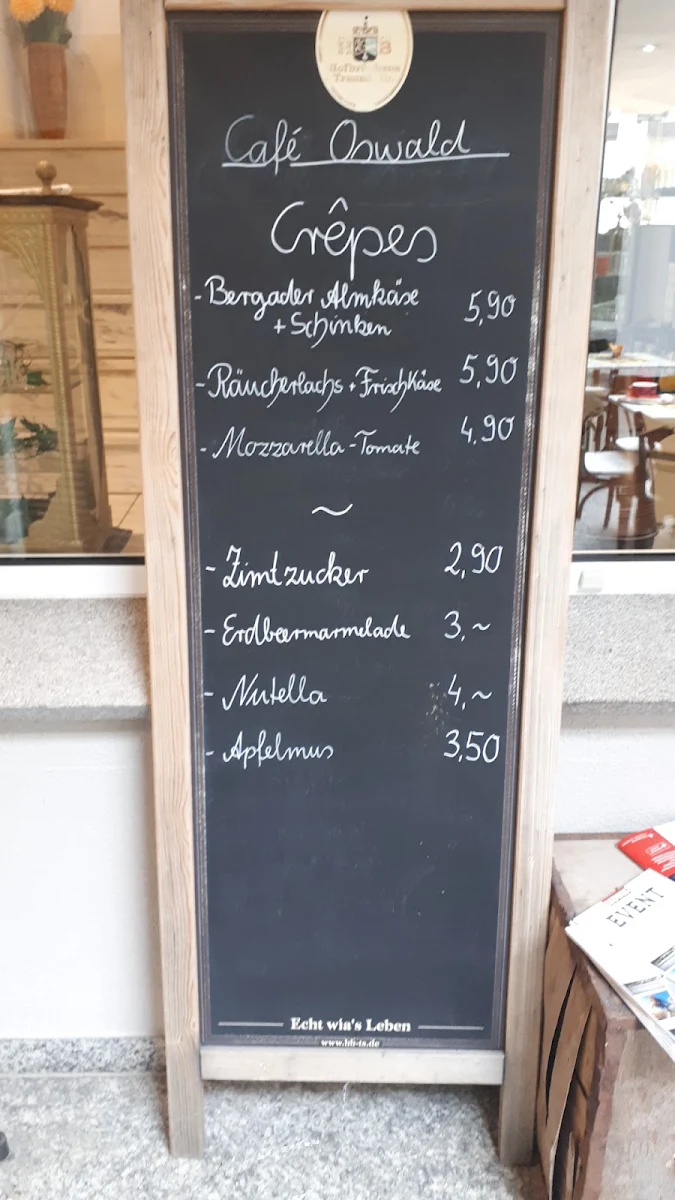 Hofbräuhaus
Traunstein
Café Oswald
Crêpes
- Bergader Almkäse 5,90
+ Schinken
- Räucherlachs + Frischkäse 5,90
- Mozzarella-Tomate 4,90
~
- Zimtzucker 2,90
- Erdbeermarmelade 3,~
- Nutella 4,~
- Apfelmus 3,50
Echt wia's Leben
www.hb-ts.de
EVENT